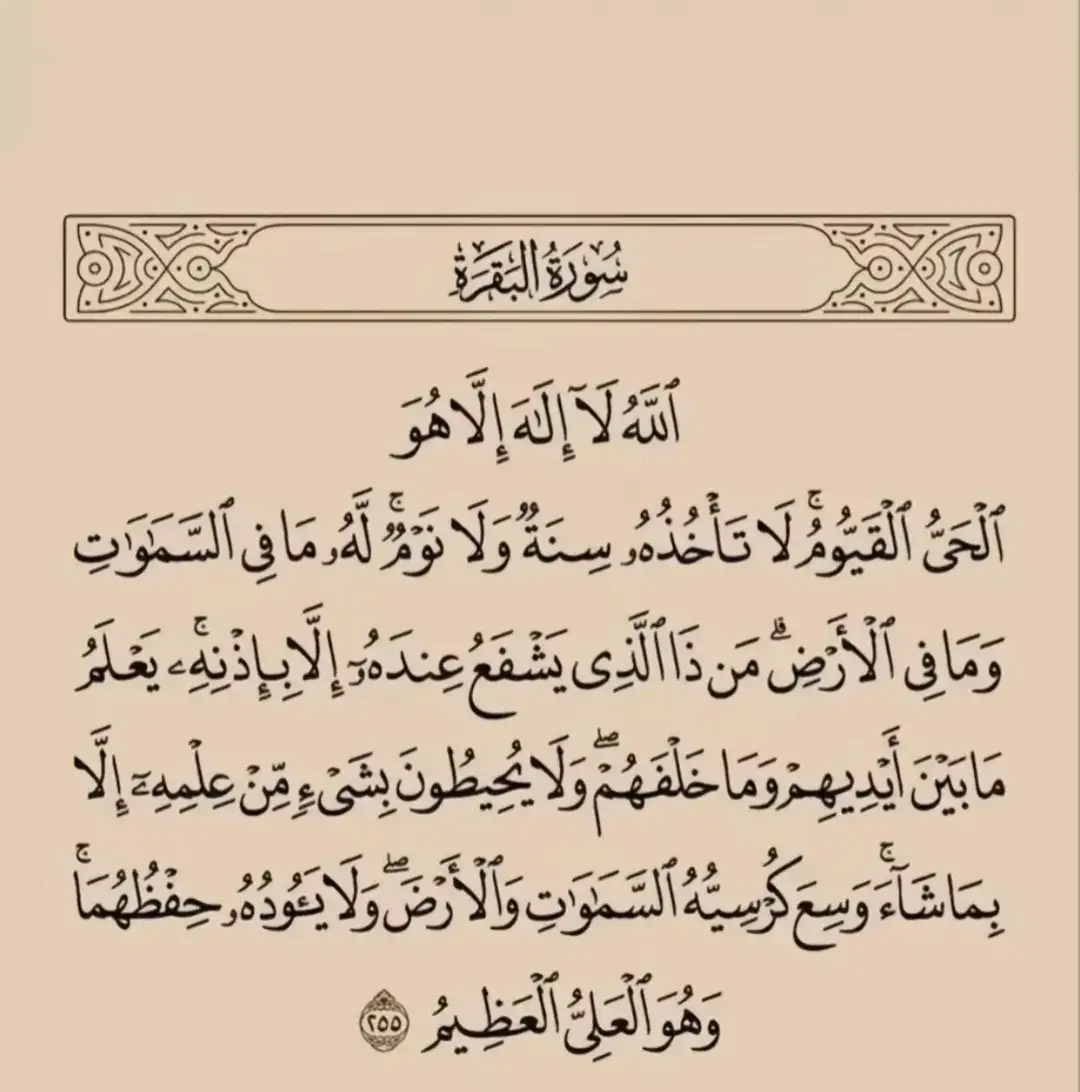 سُورَةُ البَقَرَةِ
ٱللَّهُ لَآ إِلَٰهَ إِلَّا هُوَ
ٱلْحَىُّ ٱلْقَيُّومُ ۚ لَا تَأْخُذُهُۥ سِنَةٌ وَلَا نَوْمٌ ۚ لَّهُۥ مَا فِى ٱلسَّمَٰوَٰتِ
وَمَا فِى ٱلْأَرْضِ ۗ مَن ذَا ٱلَّذِى يَشْفَعُ عِندَهُۥٓ إِلَّا بِإِذْنِهِۦ ۚ يَعْلَمُ
مَا بَيْنَ أَيْدِيهِمْ وَمَا خَلْفَهُمْ ۖ وَلَا يُحِيطُونَ بِشَىْءٍ مِّنْ عِلْمِهِۦٓ إِلَّا
بِمَا شَآءَ ۚ وَسِعَ كُرْسِيُّهُ ٱلسَّمَٰوَٰتِ وَٱلْأَرْضَ ۖ وَلَا يَـُٔودُهُۥ حِفْظُهُمَا ۚ
وَهُوَ ٱلْعَلِىُّ ٱلْعَظِيمُ ٢٥٥